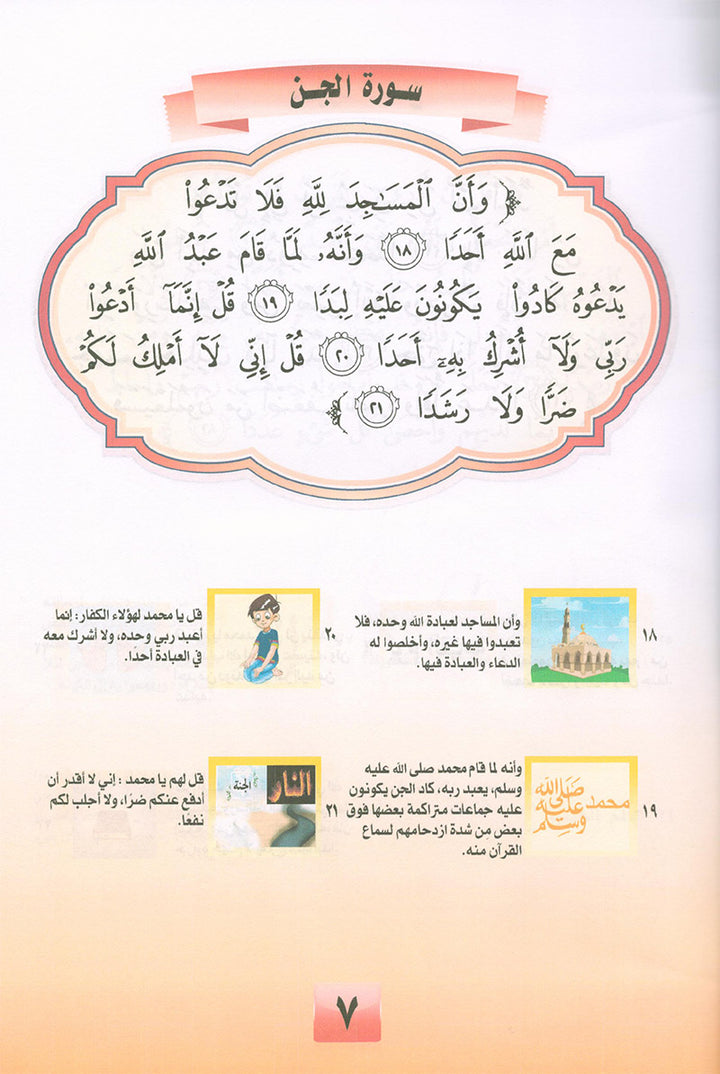 سورة الجن
وَأَنَّ ٱلْمَسَـٰجِدَ لِلَّهِ فَلَا تَدْعُوا۟
مَعَ ٱللَّهِ أَحَدًا ١٨ وَأَنَّهُۥ لَمَّا قَامَ عَبْدُ ٱللَّهِ
يَدْعُوهُ كَادُوا۟ يَكُونُونَ عَلَيْهِ لِبَدًا ١٩ قُلْ إِنَّمَآ أَدْعُوا۟
رَبِّى وَلَآ أُشْرِكُ بِهِۦٓ أَحَدًا ٢٠ قُلْ إِنِّى لَآ أَمْلِكُ لَكُمْ
ضَرًّا وَلَا رَشَدًا ٢١
١٨
وأن المساجد لعبادة الله وحده، فلا
تعبدوا فيها غيره، وأخلصوا له
الدعاء والعبادة فيها.
١٩
محمد صلى الله عليه وسلم
وأنه لما قام محمد صلى الله عليه
وسلم، يعبد ربه، كاد الجن يكونون
عليه جماعات متراكمة بعضها فوق
بعض من شدة ازدحامهم لسماع
القرآن منه.
٢٠
قل يا محمد لهؤلاء الكفار: إنما
أعبد ربي وحده، ولا أشرك معه
في العبادة أحدًا.
٢١
النار
الجنة
قل لهم يا محمد : إني لا أقدر أن
أدفع عنكم ضرًا، ولا أجلب لكم
نفعًا.
٧